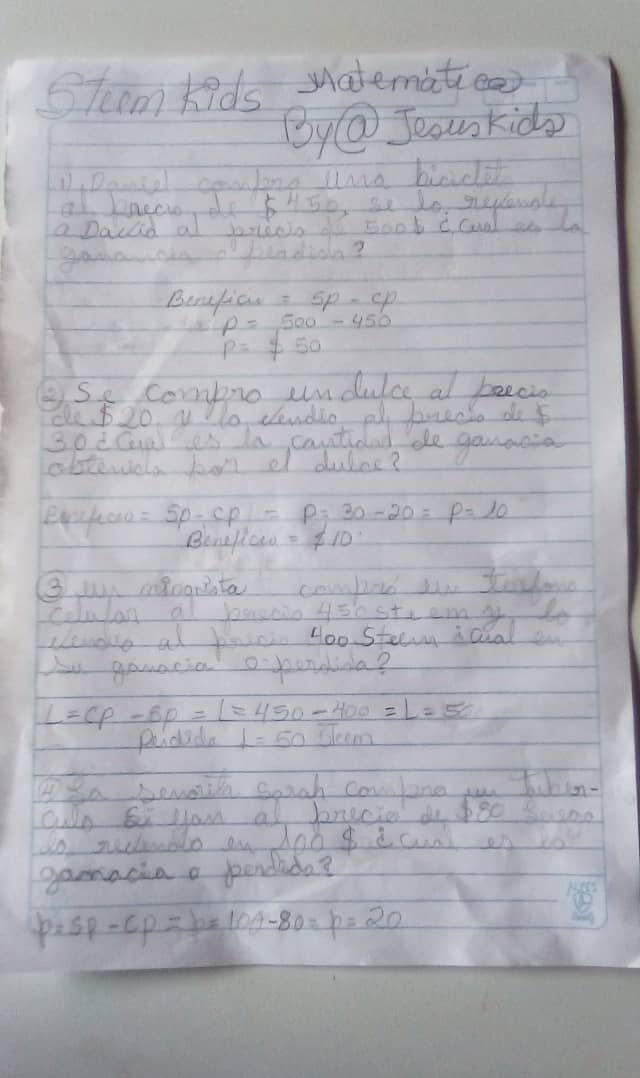 Steem Kids Matemática
By @ Jesuskids
1) Daniel compro Una biciclet
al precio, de $ 450, se lo revende
a David al precio de 500$ ¿Cual es la
ganancia o perdida?
Beneficio = Sp - cp
P = 500 - 450
P = $ 50
2) Se compro un dulce al precio
de $ 20 y lo vendio al precio de $
30 ¿Cual es la cantidad de ganacia
obtenida por el dulce?
Beneficio = Sp - cp = P = 30 - 20 = P = 10
Beneficio = $ 10
3) un minorista compró un
celular al precio 450 steem y lo
vendio al precio 400 Steem ¿cual es
su ganacia o perdida?
L = cp - Sp = L = 450 - 400 = L = 50
Perdida L = 50 Steem
4) La senorita Sarah compro un tuber-
culo yam al precio de $80 luego
lo revendio en 100 $ ¿cual es la
ganacia o perdida?
p = sp - cp = p = 100 - 80 = p = 20
ALPES